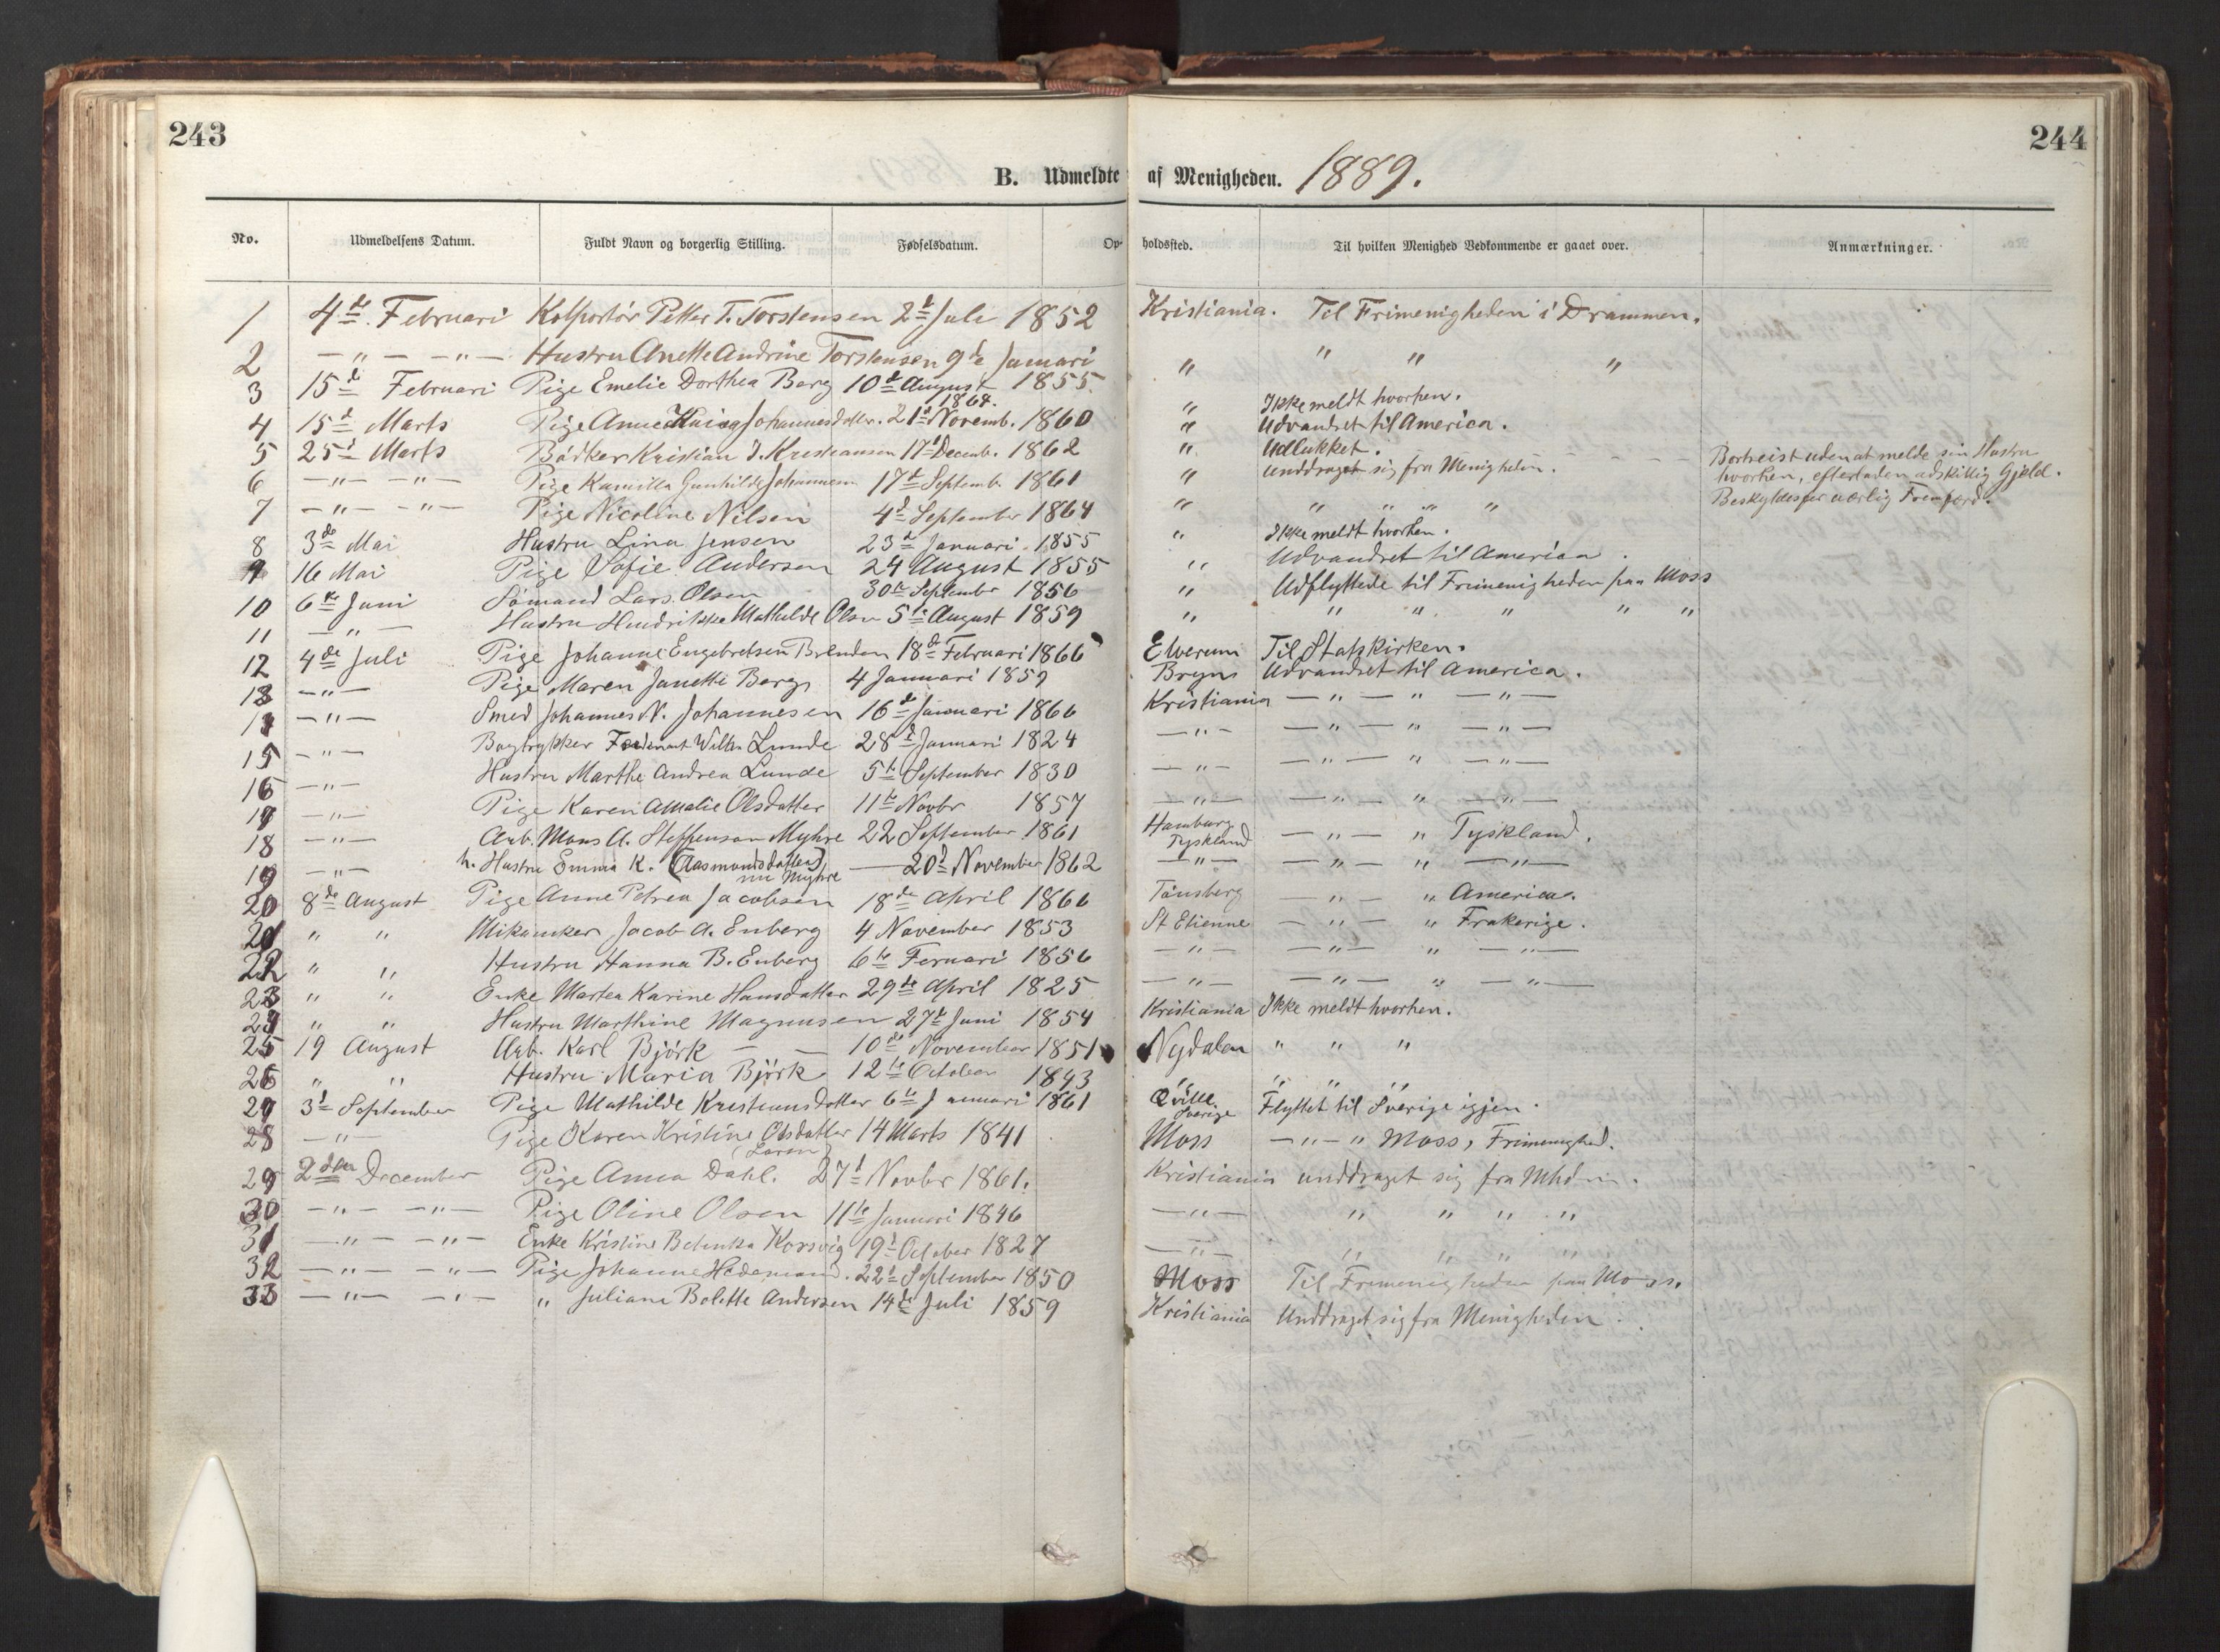 243
244
B. Udmeldte af Menigheden. 1889.
No. Udmeldelsens Datum. Fuldt Navn og borgerlig Stilling. Fødselsdatum. Opholdssted. Til hvilken Menighed Vedkommende er gaaet over. Anmærkninger.
1 4de Februari Kolportör Petter T. Torstensen 2d Juli 1852 Kristiania. Til Frimenigheden i Drammen.
2 — " — — " — Hustru Anette Andrine Torstensen 9de Januari 1855 " " " "
3 15d Februari Pige Emelie Dorthea Berg 10d August 1864. " Ikke meldt hvorhen.
4 15d Marts Pige Anne Johannesdatter. 21d Novemb. 1860 " Udvandret til America.
5 25d Marts Bödker Kristian J. Kristiansen 17d Decemb. 1862 " Udlukket. Bortreist uden at melde sin Hustru
hvorhen, efterladen adskillig Gjæld.
Beskyldes for uærlig Fremfærd.
6 — " — — " — Pige Kamilla Gunhilde Johannesen 17d Septemb. 1861 " unddraget sig fra Menigheden.
7 — " — — " — Pige Nicoline Nilsen 4d September 1864 " " " " "
8 3de Mai Hustru Lina Jensen 23d Januari 1855 " Ikke meldt hvorhen.
9 16 Mai Pige Sofie Andersen 24 August 1855 " Udvandret til America.
10 6te Juni Sömand Lars Olsen 30te September 1856 " Udflyttede til Frimenigheden paa Moss
11 — " — Hustru Hendrikke Mathilde Olsen 5te August 1859 " " " " " "
12 4de Juli Pige Johanne Engebretsen Brenden 18de Februari 1866 Elverum Til Statskirken.
13 — " — Pige Maren Janette Berg 4 Januari 1859 Bryn Udvandret til America.
14 — " — Smed Johannes N. Johannesen 16de Januari 1866 Kristiania — " — " — " —
15 — " — Bogtrykker Lunde 28d Januari 1824 — " — — " — " — " —
16 — " — Hustru Marthe Andrea Lunde 5te September 1830 — " — — " — " — " —
17 — " — Pige Karen Amalie Olsdatter 11te Novbr 1857 — " — — " — " — " —
18 — " — Arb. Mons A. Steffensen Myhre 22 September 1861 Hamburg Tyskland — " — " Tyskland.
19 — " — h. Hustru Emma K. (Aasmundsdatter) nu Myhre — 20d November 1862 — " — — " — " — " —
20 8de August Pige Anne Petrea Jacobsen 18de April 1866 Tönsberg — " — " America.
21 " " Jacob A. Enberg 4 November 1853 St Etienne — " — " Frakerige.
22 " " Hustru Hanna B. Enberg 6te Feruari 1856 — " — — " — " — " —
23 " " Enke Martea Karine Hansdatter 29de April 1825 — " — — " — " — " —
24 " " Hustru Marthine Magnusen 27d Juni 1854 Kristiania Ikke meldt hvorhen.
25 19 August Arb. Karl Björk — — 10de November 1851 Nydalen " " "
26 " " Hustru Maria Björk 12te October 1843 " " " "
27 3d September Pige Mathilde Kristiansdatter 6te Januari 1861 Qville. Sverige Flyttet til Sverige igjen.
28 — " — Pige Karen Kristine Olsdatter (Loren) 14 Marts 1841 Moss — " — " Moss, Frimenighed.
29 2den December Pige Anna Dahl. 27d Novbr 1861. Kristiania unddraget sig fra Mhden.
30 — " — — " — Pige Oline Olsen 11te Januari 1846 — " — " " " "
31 — " — — " — Enke Kristine Korsvig 19d October 1827 — " — " " " "
32 — " — — " — Pige Johanne Hedemand. 22d September 1850 Moss Til Frimenigheden paa Moss.
33 — " — — " — " Juliane Bolette Andersen 14de Juli 1859 Kristiania Unddraget sig fra Menigheden.